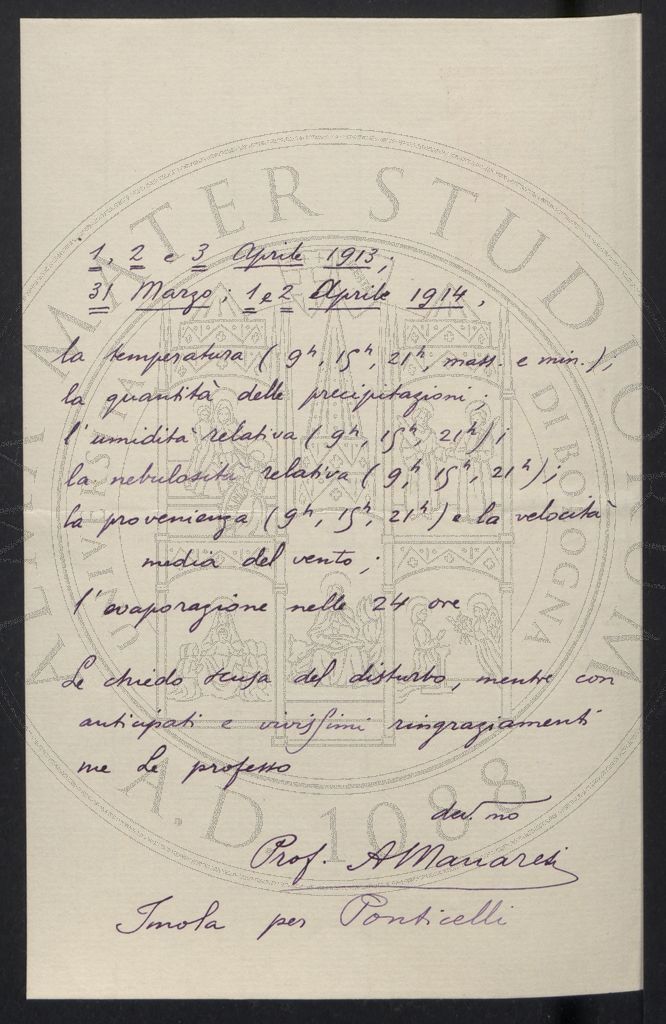 1, 2 e 3 Aprile 1913;
31 Marzo; 1 e 2 Aprile 1914,
la temperatura (9ʰ, 15ʰ, 21ʰ, mass. e min.);
la quantità delle precipitazioni;
l'umidità relativa (9ʰ, 15ʰ, 21ʰ);
la nebulosità relativa (9ʰ, 15ʰ, 21ʰ);
la provenienza (9ʰ, 15ʰ, 21ʰ) e la velocità
media del vento;
l'evaporazione nelle 24 ore
Le chiedo scusa del disturbo, mentre con
anticipati e vivissimi ringraziamenti
me Le professo
dev.mo
Prof. A Manaresi
Imola per Ponticelli
ALMA MATER STUDIORUM
UNIVERSITÀ DI BOLOGNA
A.D. 1088